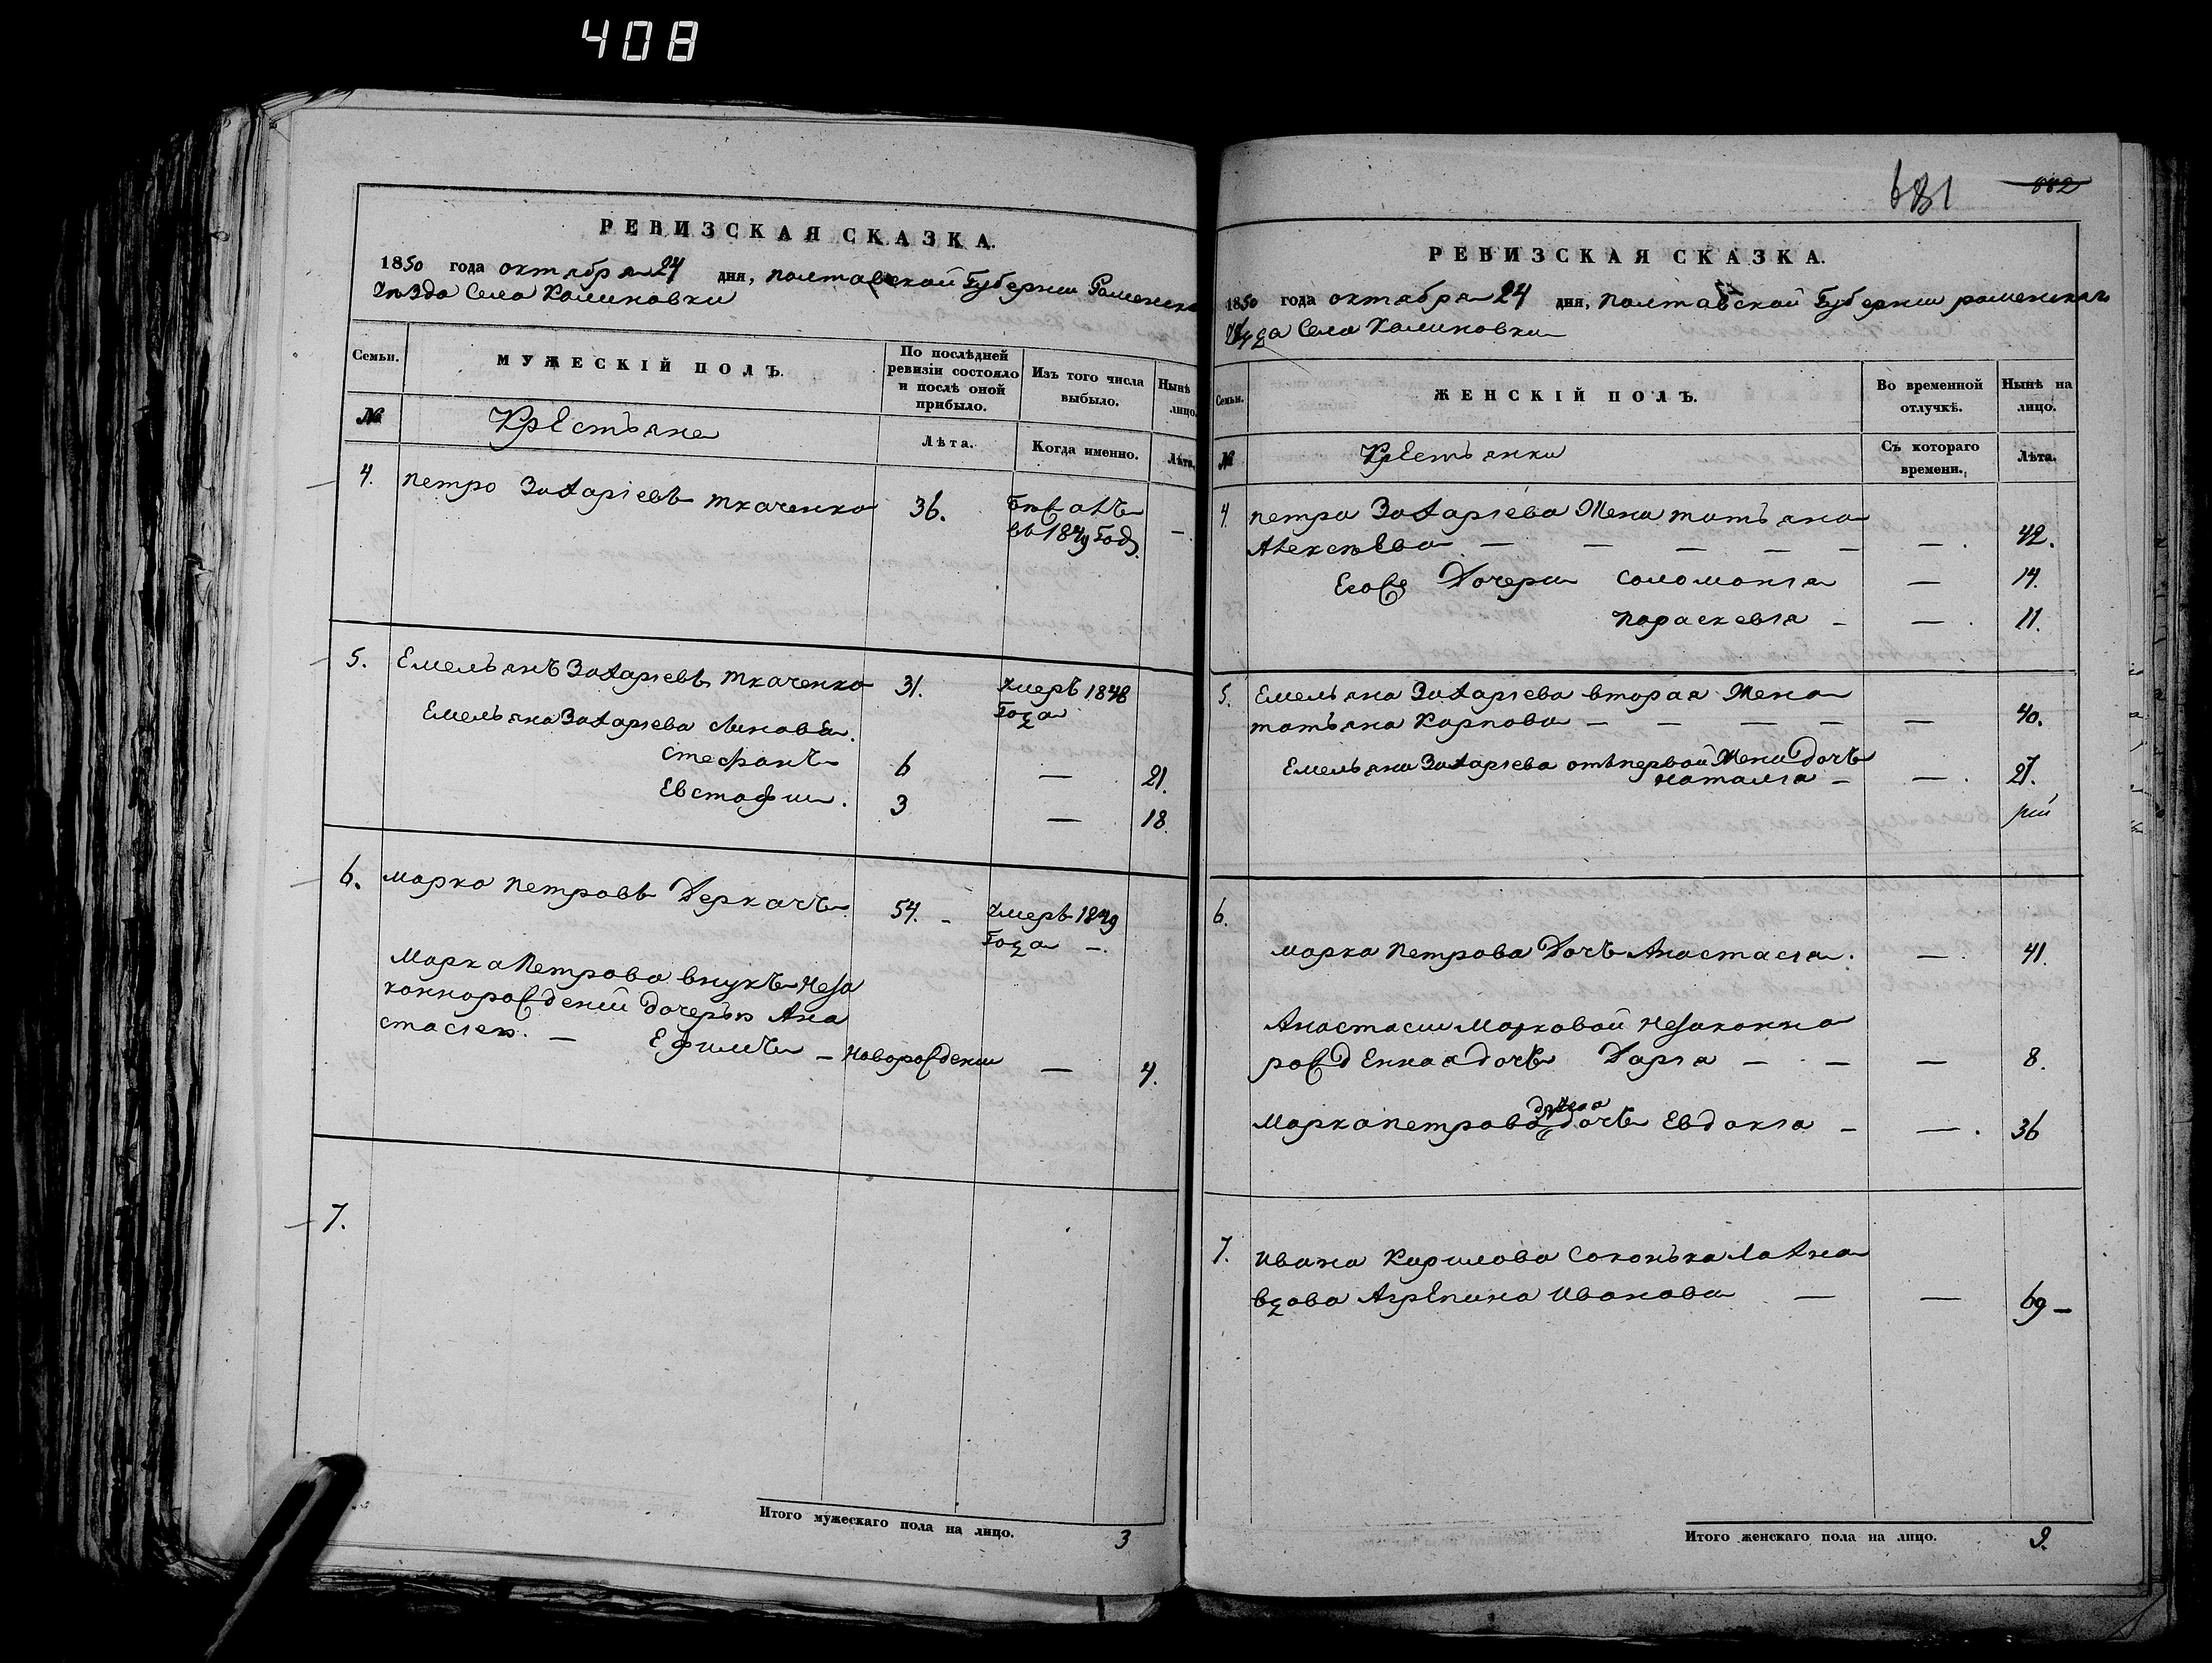 408
РЕВИЗСКАЯ СКАЗКА.
1850 года октября 24 дня, полтавской Губернии Роменска
Уѣзда Села Калиновки
Семьи.
МУЖЕСКІЙ ПОЛЪ.
По послѣдней ревизіи состояло и послѣ оной прибыло.
Изъ того числа выбыло.
Нынѣ лицо.
№
Крестьяне
Лѣта.
Когда именно.
Лѣта.
4. петро Захаріевъ ткаченко 36. Бѣжалъ —
въ 1849 Году.
5. Емельянъ Захаріевъ ткаченко 31. умеръ 1848
Года
Емельяна Захаріева Синовья.
Стефанъ 6 — 21.
Евстафии. 3 — 18.
6. Марко Петровъ Деркачъ 54. — умеръ 1849
Года —.
Марка Петрова внукъ Неза
коннорожденій дочерью Ана
стасіею. — Ефимъ — Новорожденни — 4.
7.
Итого мужескаго пола на лицо. 3
681 882
РЕВИЗСКАЯ СКАЗКА.
1850 года октября 24 дня, полтавской Губернии роменскаго
уѣзда Села Калиновки
Семьи.
ЖЕНСКІЙ ПОЛЪ.
Во временной отлучкѣ.
Нынѣ на лицо.
№
Крестьянки
Съ котораго времени.
Лѣта.
4. петра Захаріева Жена татьяна
Алексѣева — — — — — — . 42.
Егоже Дочери Соломонія — 14.
параскевія — — . 11.
5. Емельяна Захаріева вторая Жена
татьяна Карпова — — — — — 40.
Емельяна Захаріева отъ первой Жени Дочь
наталія — — . 27.
6.
Марка Петрова Дочь Анастасія. — . 41.
Анастасии Марковой Незаконно
рожденная дочь Дарія — — — 8.
другая
Марка петрова дочь Евдокія — — . 36
7. Ивана Кирилова Соконька
вдова Агрепина Иванова — — 69 —
Итого женскаго пола на лицо. 9.